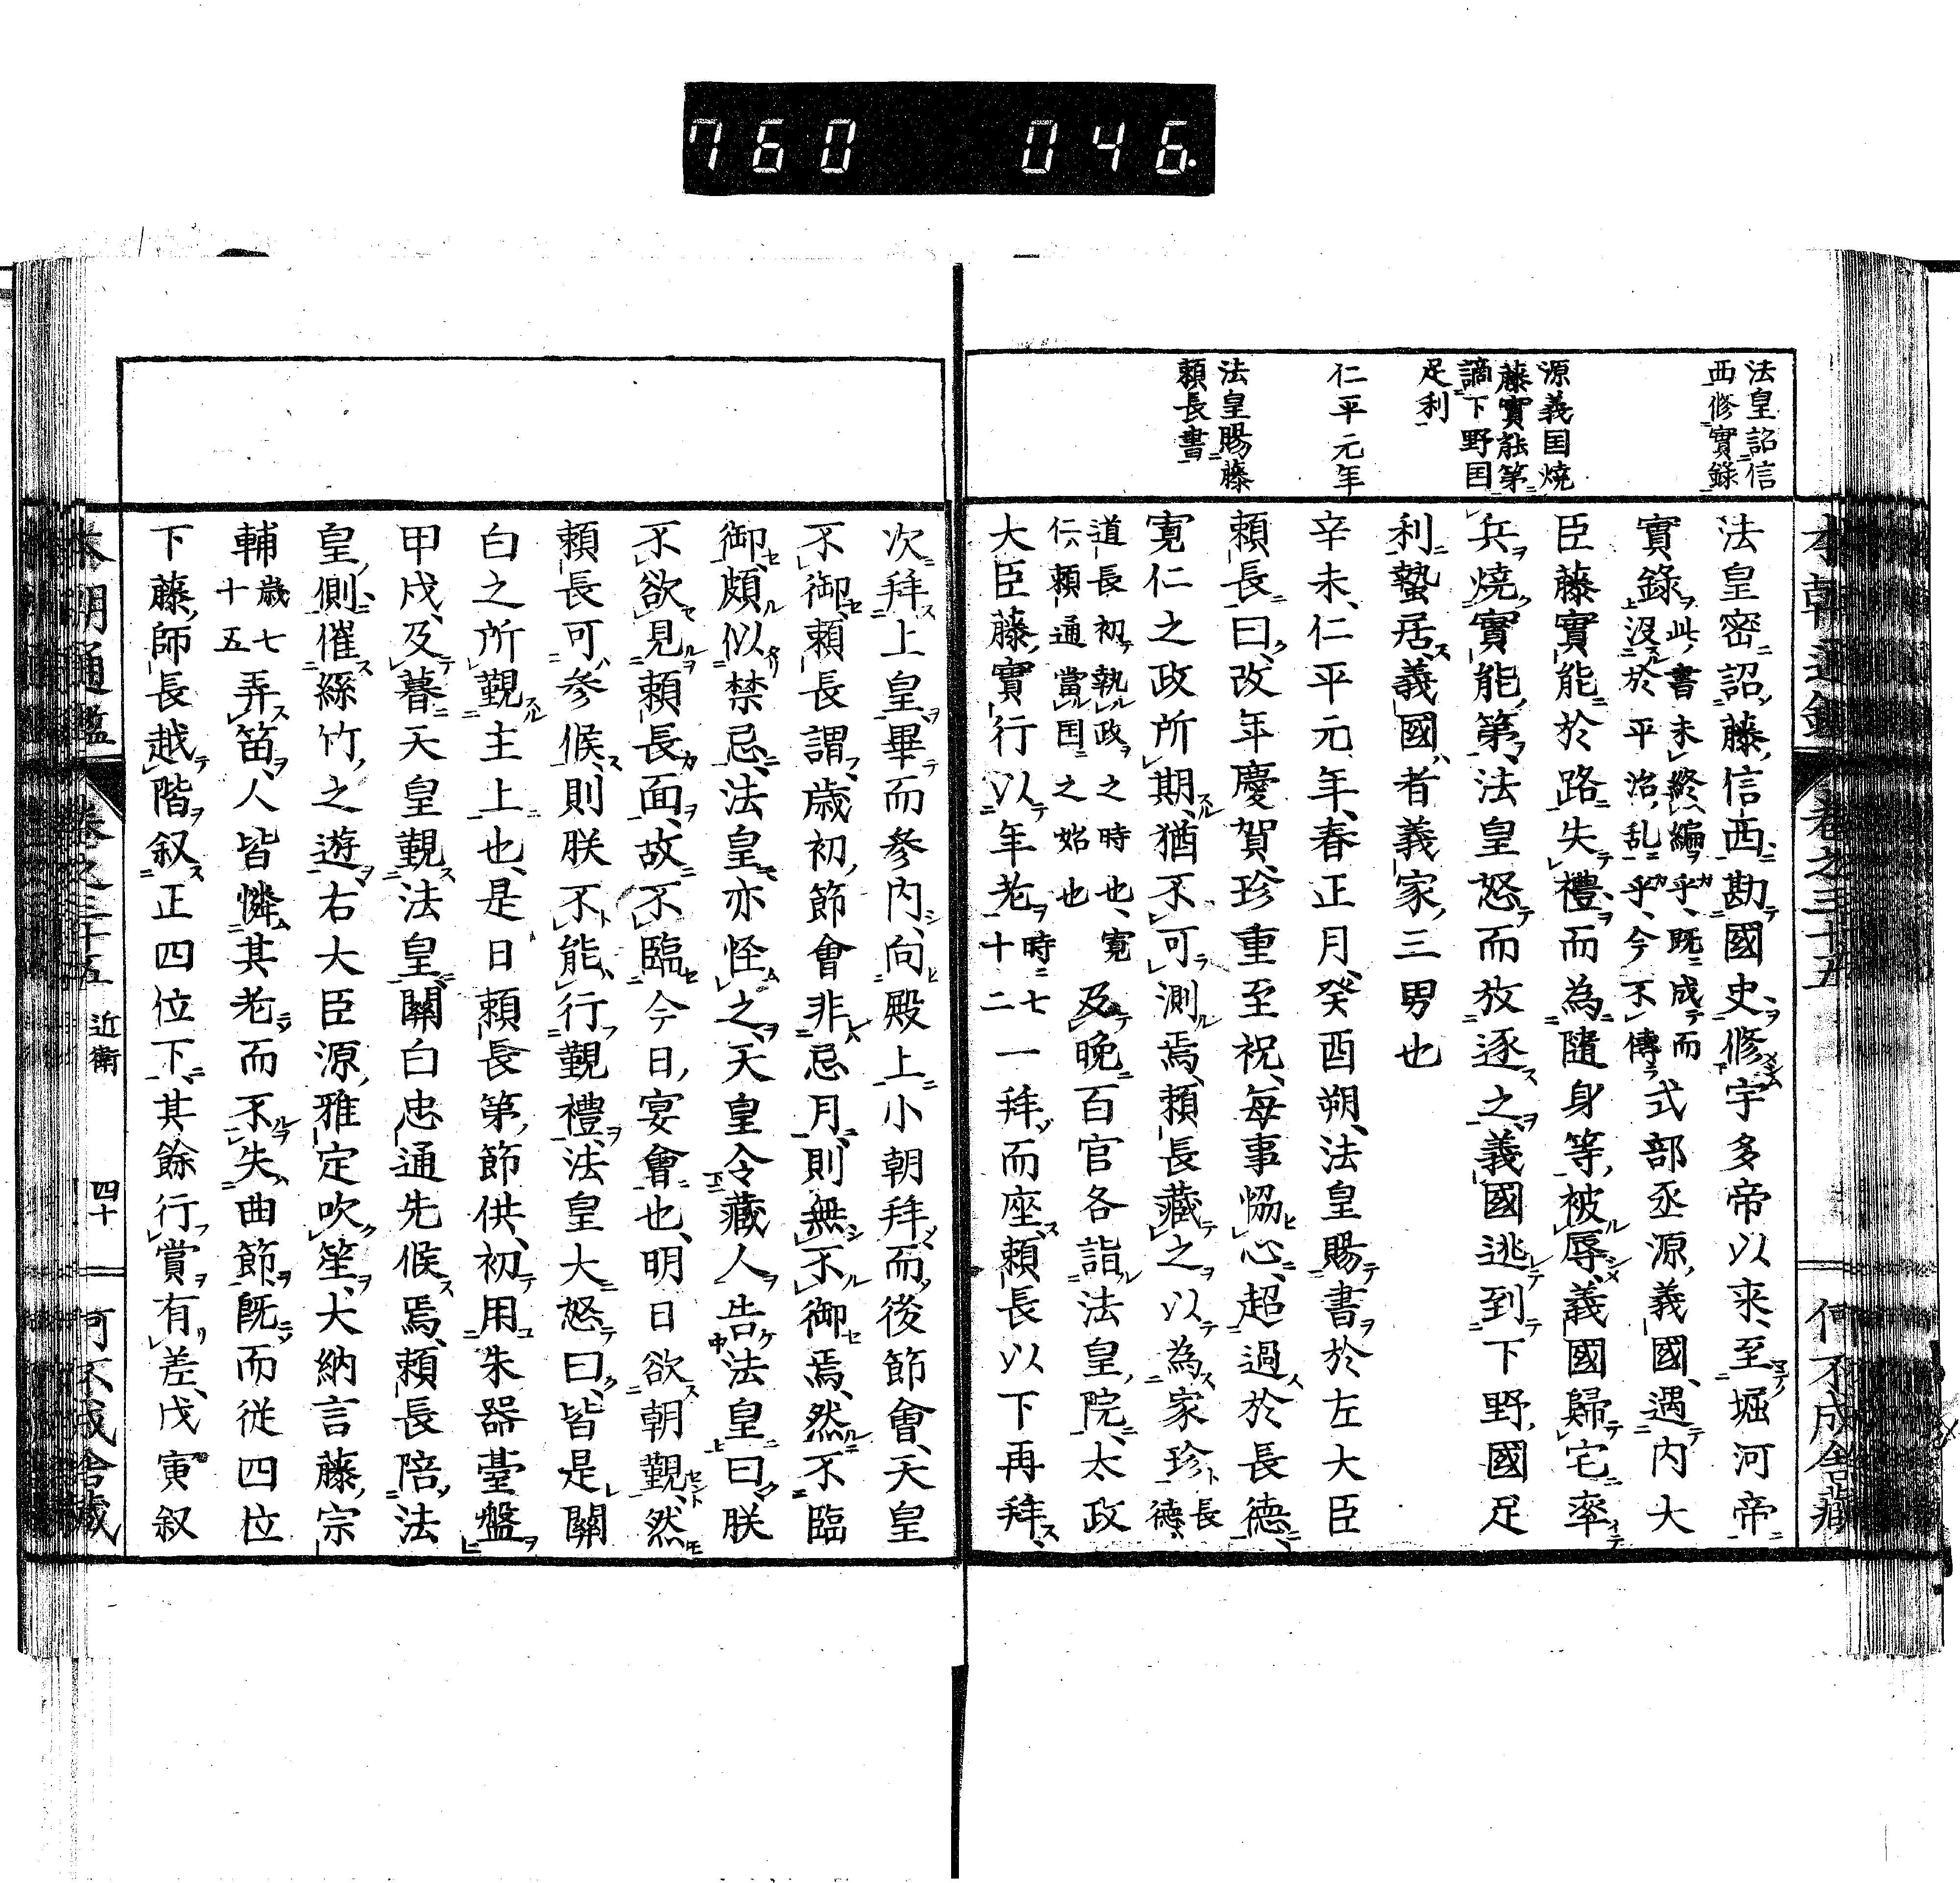 760 046.
法皇詔信
西修實錄
源義国燒
藤實能第
謫下野国
足利
仁平元年
法皇賜藤
頼長書
法皇密詔藤信西勘國史修宇多帝以来至堀河帝
實錄此書未終編乎既成而沒於平治乱乎今不傳式部丞源義國遇内大
臣藤實能於路失禮而為隨身等被辱義國歸宅率
兵燒實能第法皇怒而放逐之義國逃到下野國足
利蟄居義國者義家三男也
辛未仁平元年春正月癸酉朔法皇賜書於左大臣
頼長曰改年慶賀珍重至祝每事恊心超過於長德
寛仁之政所期猶不可測焉頼長藏之以為家珍長德
道長初執政之時也寛仁頼通當国之始也及晚百官各詣法皇院太政
大臣藤實行以年老時七十二一拜而座頼長以下再拜
次拜上皇畢而參内向殿上小朝拜而後節會天皇
不御頼長謂歲初節會非忌月則無不御焉然不臨
御頗似禁忌法皇亦怪之天皇令藏人告法皇曰朕
不欲見頼長面故不臨今日宴會也明日欲朝覲然
頼長可參候則朕不能行覲禮法皇大怒曰皆是關
白之所覲主上也是日頼長第節供初用朱器臺盤
甲戌及暮天皇覲法皇關白忠通先候焉頼長陪法
皇側催絲竹之遊右大臣源雅定吹笙大納言藤宗
輔歲七十五弄笛人皆憐其老而不失曲節既而從四位
下藤師長越階叙正四位下其餘行賞有差戊寅叙
本朝通鑑 卷之三十五 近衛 四十